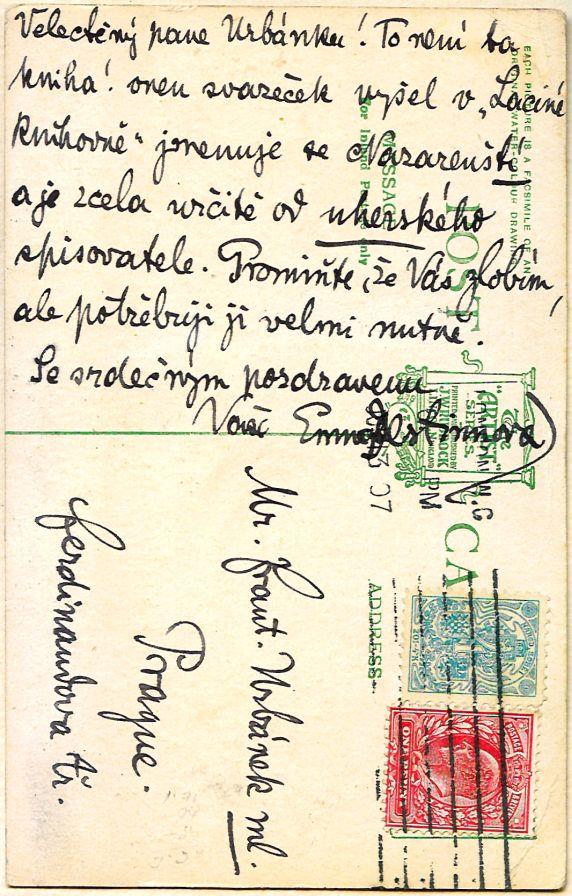 Velectěný pane Urbánku! To není ta
kniha! onen svazeček vyšel v „Laciné
knihovně“ jmenuje se Nazarenští
a je zcela určitě od uherského
spisovatele. Promiňte, že Vás zlobím,
ale potřebuji ji velmi nutně.
Se srdečným pozdravem
Vaše Emma
Mr. Frant. Urbánek ml.
Prague.
Ferdinandova tř.
EACH PICTURE IS A FACSIMILE OF AN
WATER-COLOUR DRAWING
For Inland Postage only
MESSAGE
POST CA
THE
"ARTIST"
SERIES.
ADDRESS
W.C
PM
07
POSTAGE
ONE PENNY